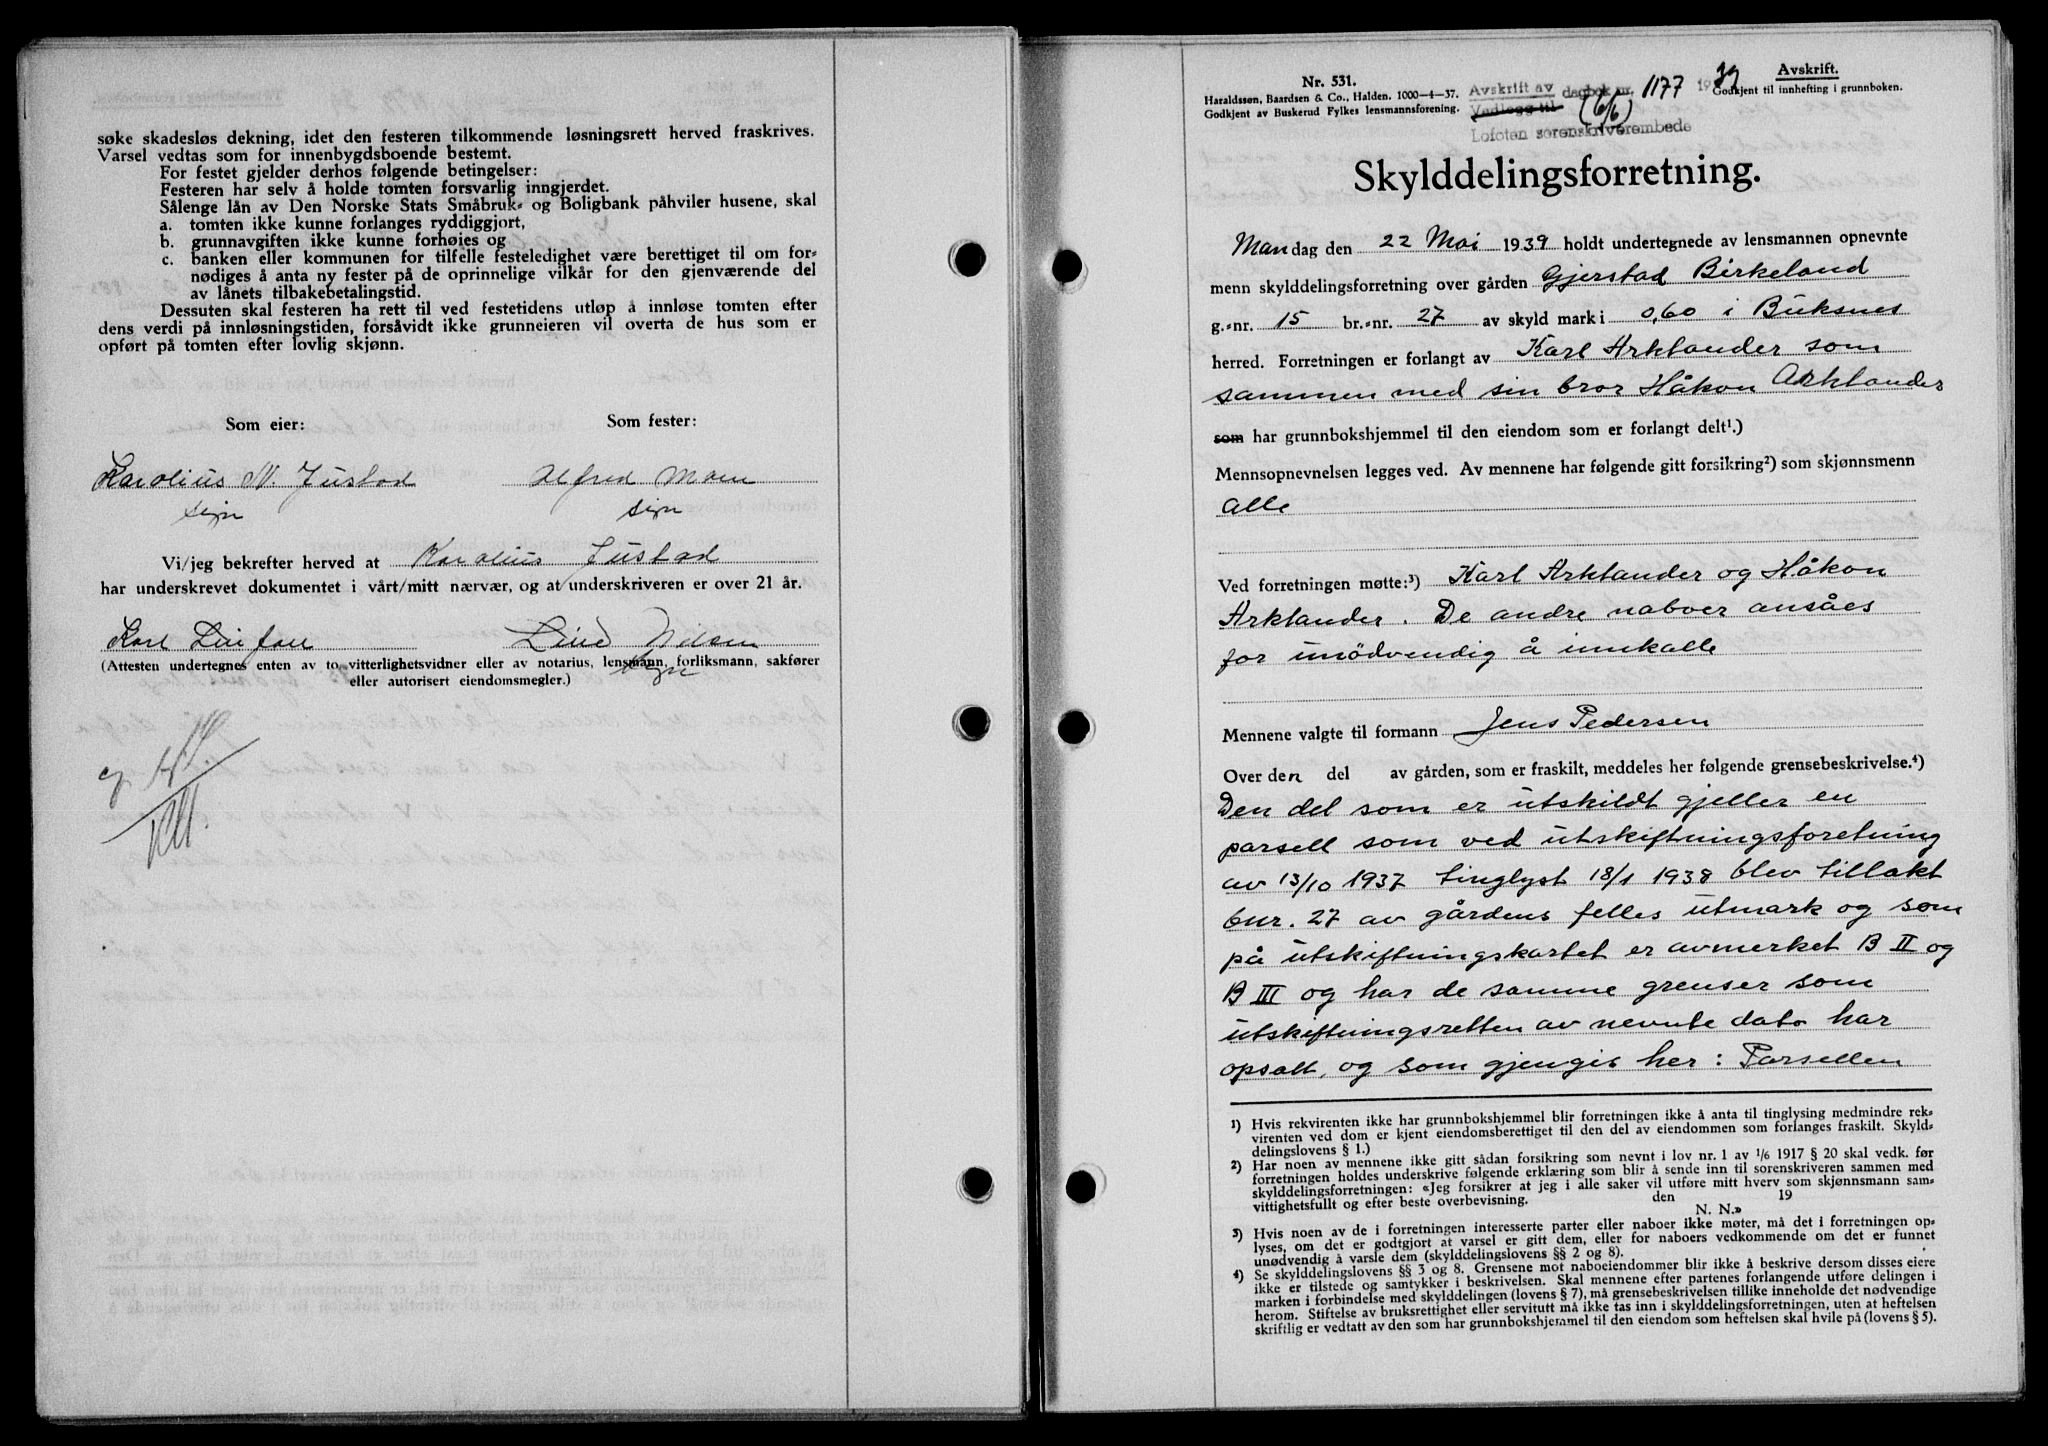 søke skadesløs dekning, idet den festeren tilkommende løsningsrett herved fraskrives.
Varsel vedtas som for innenbygdsboende bestemt.
For festet gjelder derhos følgende betingelser:
Festeren har selv å holde tomten forsvarlig inngjerdet.
Sålenge lån av Den Norske Stats Småbruk- og Boligbank påhviler husene, skal
a. tomten ikke kunne forlanges ryddiggjort,
b. grunnavgiften ikke kunne forhøies og
c. banken eller kommunen for tilfelle festeledighet være berettiget til om for-
nødiges å anta ny fester på de oprinnelige vilkår for den gjenværende del
av lånets tilbakebetalingstid.
Dessuten skal festeren ha rett til ved festetidens utløp å innløse tomten efter
dens verdi på innløsningstiden, forsåvidt ikke grunneieren vil overta de hus som er
opført på tomten efter lovlig skjønn.
Som eier: Som fester:
Karolius N. Justad Alfred Moen
sign sign
Vi/jeg bekrefter herved at Karolius Justad
har underskrevet dokumentet i vårt/mitt nærvær, og at underskriveren er over 21 år.
Karl
(Attesten undertegnes enten av to vitterlighetsvidner eller av notarius, lensmann, forliksmann, sakfører
eller autorisert eiendomsmegler.) sign
Nr. 531.
Haraldssøn, Baardsen & Co., Halden. 1000-4-37.
Godkjent av Buskerud Fylkes lensmannsforening.
Avskrift av dagbok nr. 1177 1939
Vedlegg til (6/6)
Lofoten sorenskriverembede
Avskrift.
Godkjent til innhefting i grunnboken.
Skylddelingsforretning.
Mandag den 22 Mai 1939 holdt undertegnede av lensmannen opnevnte
menn skylddelingsforretning over gården Gjerstad Birkeland
g.-nr. 15 br.-nr. 27 av skyld mark i 0,60 i Buksnes
herred. Forretningen er forlangt av Karl Arklander som
sammen med sin bror Håkon Arklander
som har grunnbokshjemmel til den eiendom som er forlangt delt¹.)
Mennsopnevnelsen legges ved. Av mennene har følgende gitt forsikring²) som skjønnsmenn
alle
Ved forretningen møtte:³) Karl Arklander og Håkon
Arklander. De andre naboer ansåes
for unödvendig å innkalle
Mennene valgte til formann Jens Pedersen
Over den del av gården, som er fraskilt, meddeles her følgende grensebeskrivelse.⁴)
Den del som er utskildt gjeller en
parsell som ved utskiftningsforetning
av 13/10 1937 tinglyst 18/1 1938 blev tillakt
bnr. 27 av gårdens felles utmark og som
på utskiftningskartet er avmerket B II og
B III og har de samme grenser som
utskiftningsretten av nevnte dato har
opsatt, og som gjengis her: Parsellen
1) Hvis rekvirenten ikke har grunnbokshjemmel blir forretningen ikke å anta til tinglysing medmindre rek-
virenten ved dom er kjent eiendomsberettiget til den del av eiendommen som forlanges fraskilt. Skyld-
delingslovens § 1.)
2) Har noen av mennene ikke gitt sådan forsikring som nevnt i lov nr. 1 av 1/6 1917 § 20 skal vedk. før
forretningen holdes underskrive følgende erklæring som blir å sende inn til sorenskriveren sammen med
skylddelingsforretningen: «Jeg forsikrer at jeg i alle saker vil utføre mitt hverv som skjønnsmann sam-
vittighetsfullt og efter beste overbevisning. den 19
N. N.»
3) Hvis noen av de i forretningen interesserte parter eller naboer ikke møter, må det i forretningen op-
lyses, om det er godtgjort at varsel er gitt dem, eller for naboers vedkommende om det er funnet
unødvendig å varsle dem (skylddelingslovens §§ 2 og 8).
4) Se skylddelingslovens §§ 3 og 8. Grensene mot naboeiendommer blir ikke å beskrive dersom disses eiere
ikke er tilstede og samtykker i beskrivelsen. Skal mennene efter partenes forlangende utføre delingen i
marken i forbindelse med skylddelingen (lovens § 7), må grensebeskrivelsen tillike inneholde det nødvendige
herom. Stiftelse av bruksrettighet eller servitutt må ikke tas inn i skylddelingsforretningen, uten at heftelsen
skriftlig er vedtatt av den som har grunnbokshjemmel til den eiendom som heftelsen skal hvile på (lovens § 5).